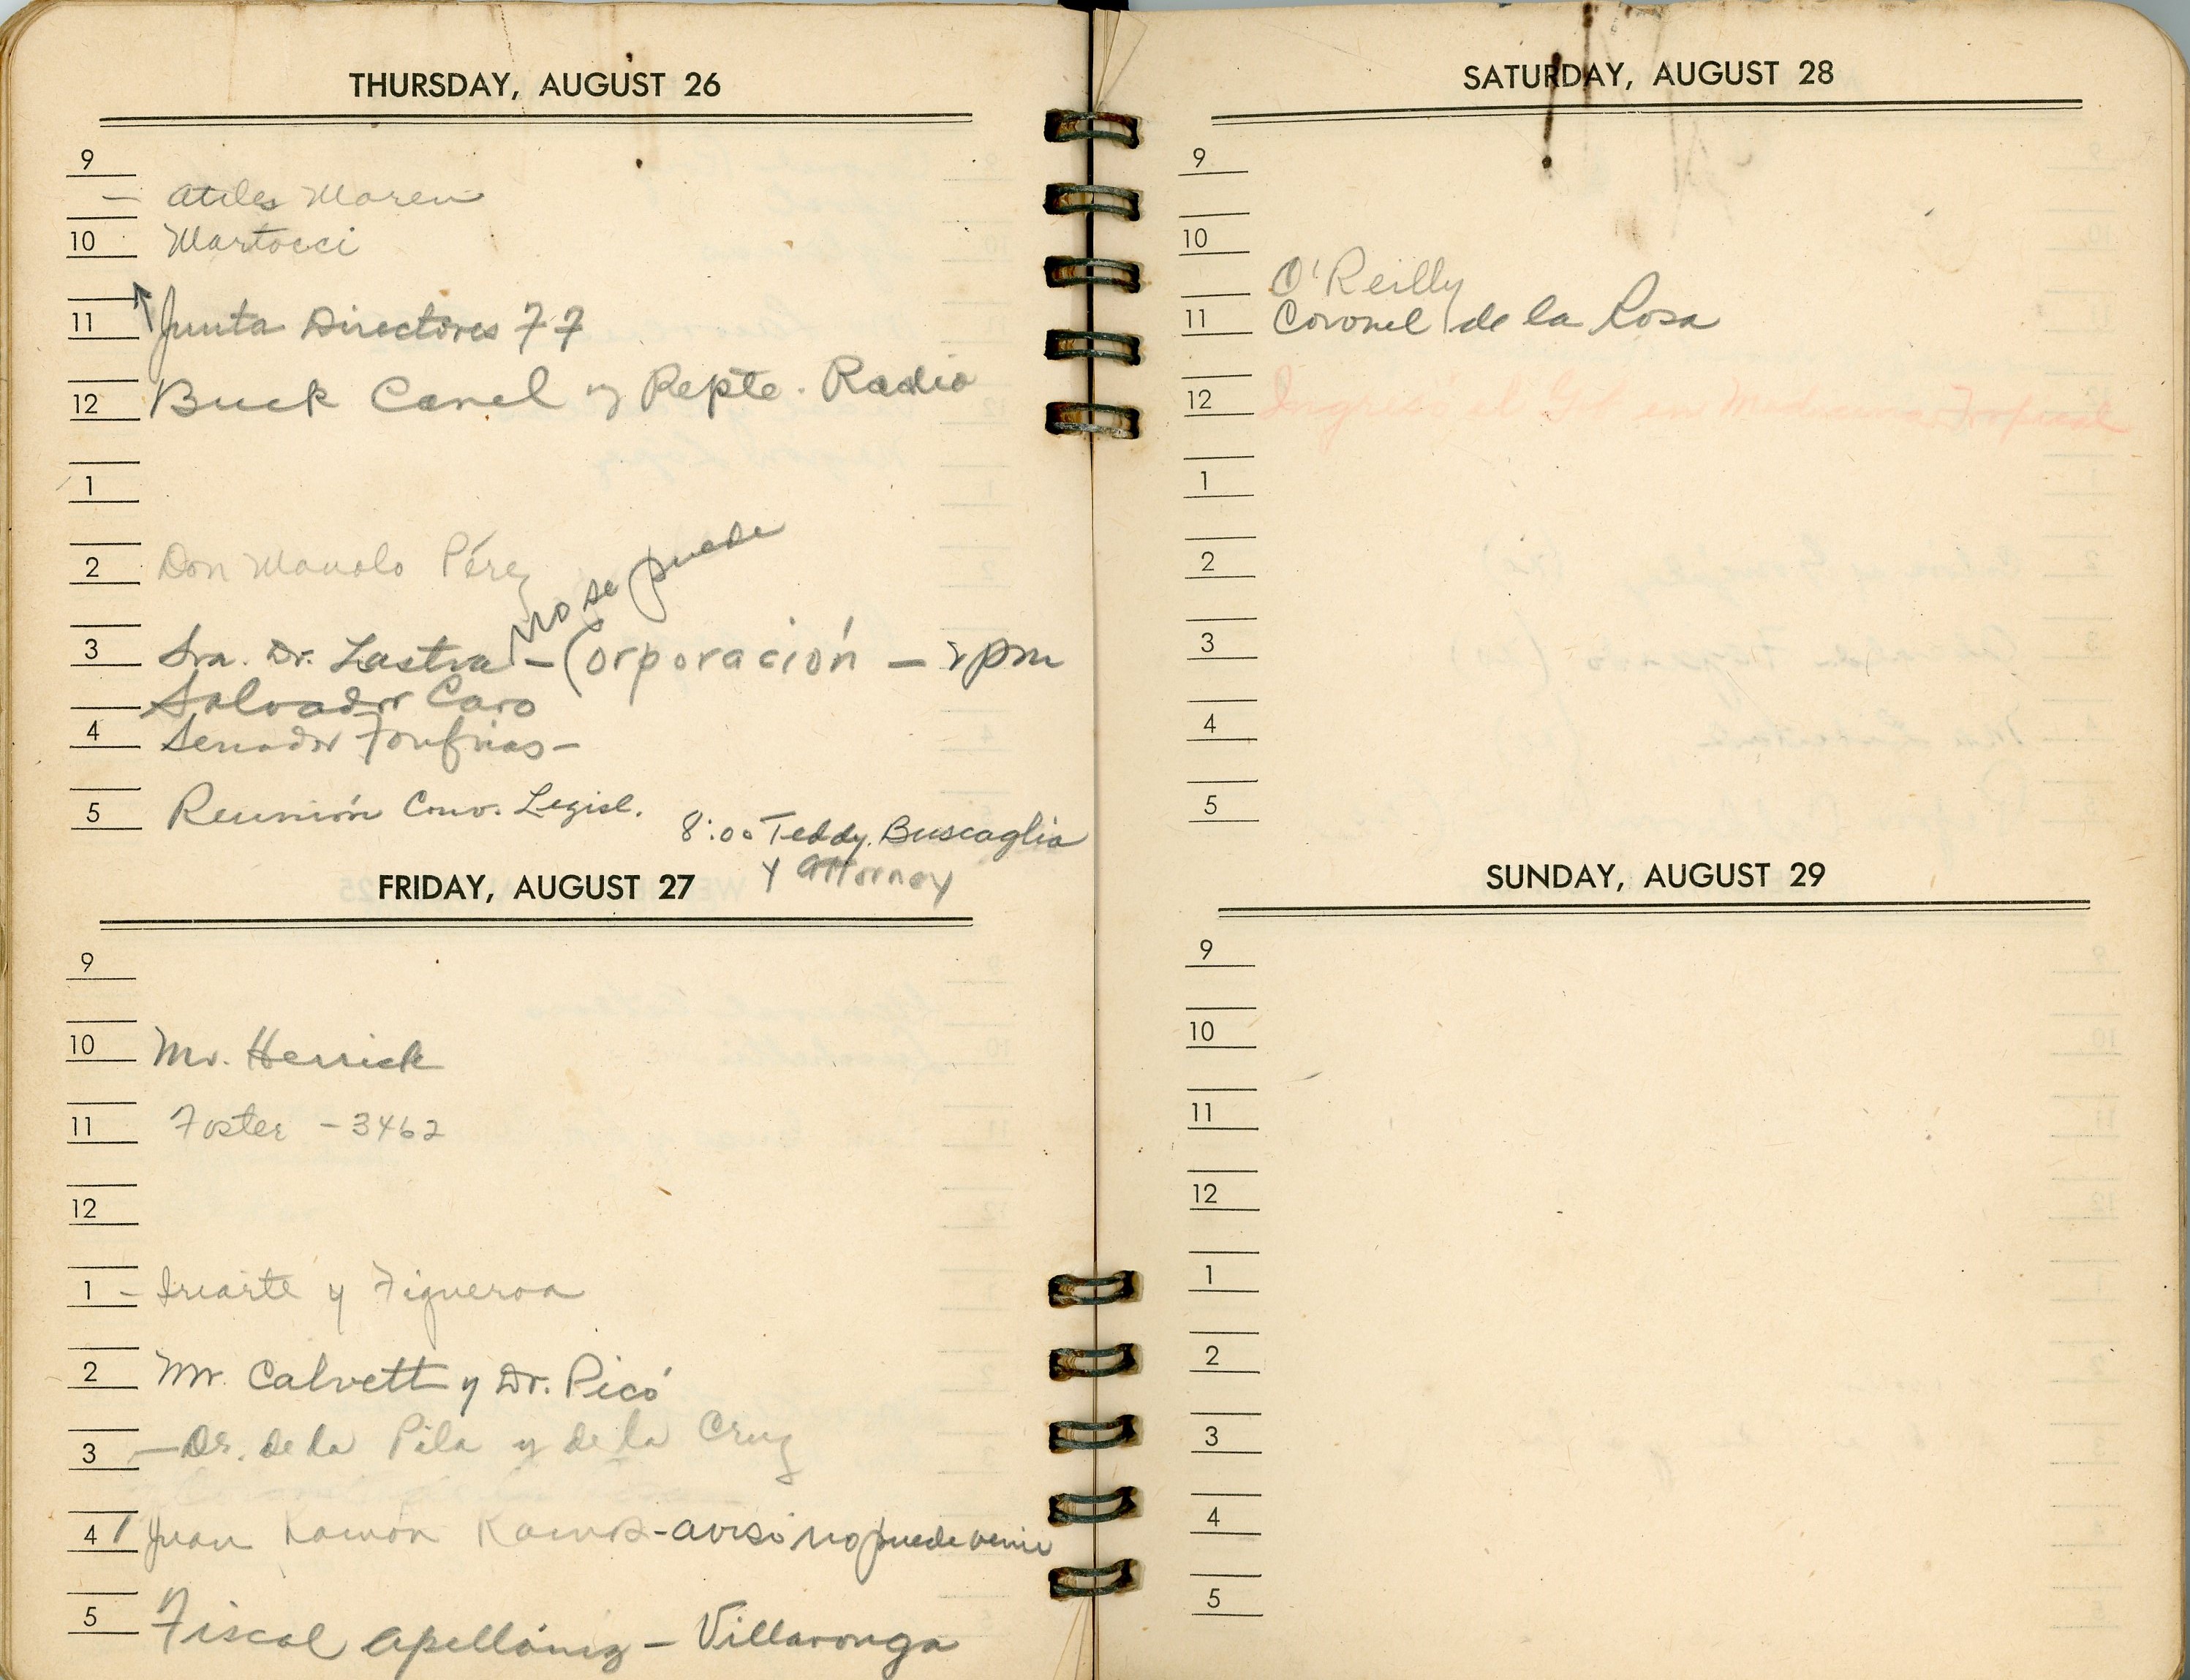 THURSDAY, AUGUST 26
9
— Atiles Moreu
10 Martocci
11 Junta Directores 77
12 Buck Canel y Repte. Radio
1
2 Don Manolo Pérez
no se puede
3 Sra. Dr. Lastra — Corporación — 2 pm
Salvador Caro
4 Senador Fonfrias —
5 Reunión Conv. Legisl.
8:00 Teddy Buscaglia
y Attorney
FRIDAY, AUGUST 27
9
10 Mr. Herrick
11 Foster - 3462
12
1 - Iriarte y Figueroa
2 Mr. Calvett y Dr. Picó
3 — Dr. de la Pila y de la Cruz
4 Juan Ramón Ramos - avisó no puede venir
5 Fiscal Apellániz — Villaronga
SATURDAY, AUGUST 28
9
10
O'Reilly
11 Coronel de la Rosa
12 Ingresó el Gob en Medicina Tropical
1
2
3
4
5
SUNDAY, AUGUST 29
9
10
11
12
1
2
3
4
5